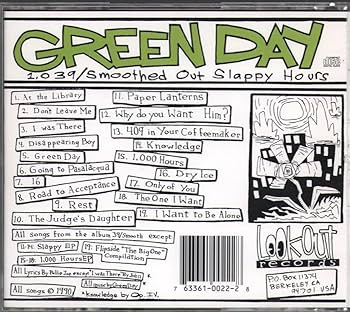 GREEN DAY
1,039/Smoothed Out Slappy Hours
1. At the Library
2. Don't Leave Me
3. I was There
4. Disappearing Boy
5. Green Day
6. Going to Pasalacqua
7. 16
8. Road to Acceptance
9. Rest
10. The Judge's Daughter
11. Paper Lanterns
12. Why do you Want Him?
13. 409 in Your Coffeemaker
14. Knowledge
15. 1,000 Hours
16. Dry Ice
17. Only of You
18. The One I Want
19. I Want to Be Alone
All songs from the album 39/smooth except
11-14: Slappy EP
15-18: 1,000 Hours EP
19: Flipside "The Big One"
Compildtion
All Lyrics By Billie Joe except "I was There" By John
All music by Green Day
All songs © 1990
*knowledge by Op. I.V.
7 63361-0022-2 8
LOOKOUT
records
P.O. BOX 11374
BERKELEY CA
94701 USA